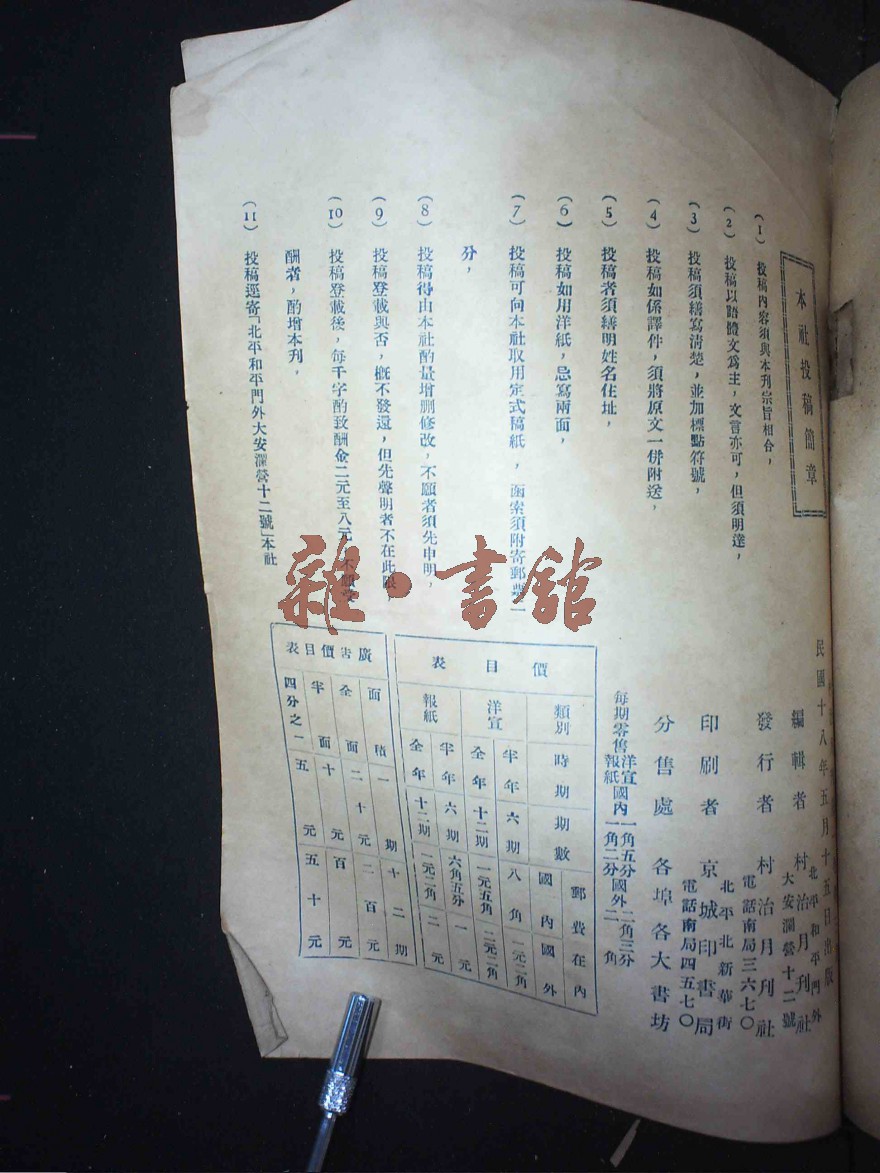 本社投稿簡章
(1) 投稿內容須與本刊宗旨相合，
(2) 投稿以語體文為主，文言亦可，但須明達，
(3) 投稿須繕寫清楚，並加標點符號，
(4) 投稿如係譯件，須將原文一併附送，
(5) 投稿者須繕明姓名住址，
(6) 投稿如用洋紙，忌寫兩面，
(7) 投稿可向本社取用定式稿紙，函索須附寄郵票一
分，
(8) 投稿得由本社酌量增刪修改，不願者須先申明，
(9) 投稿登載與否，概不發還，但先聲明者不在此限，
(10) 投稿登載後，每千字酌致酬金二元至八元，不願受
酬者，酌增本刊，
(11) 投稿逕寄「北平和平門外大安瀾營十二號」本社
民國十八年五月十五日出版
編輯者 村治月刊社
北平和平門外
大安瀾營十二號
發行者 村治月刊社
電話南局三六七〇
印刷者 京城印書局
北平北新華街
電話南局四五七〇
分售處 各埠各大書坊
每期零售 洋宣 國內 一角五分 國外 二角三分
報紙 一角二分 二角
價目表
類別 時期 期數 郵費在內
國內 國外
洋宣 半年 六期 八角 一元二角
全年 十二期 一元五角 二元二角
報紙 半年 六期 六角五分 一元
全年 十二期 一元二角 二元
廣告價目表
面積 一期 十二期
全面 二十元 二百元
半面 十元 百元
四分之一 五元 五十元
雜·書館